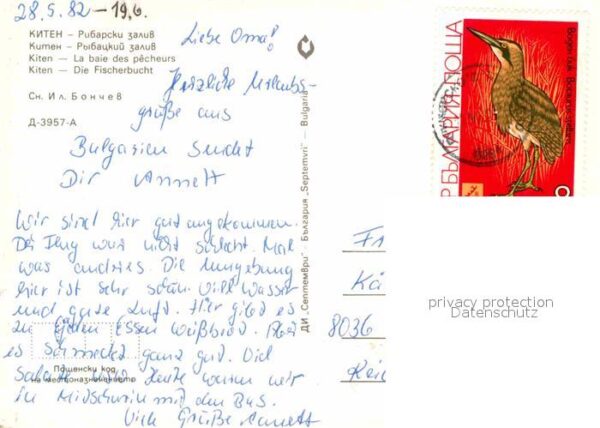 28.5.82 – 19.6.
КИТЕН – Рибарски залив
Китен – Рыбацкий залив
Kiten – La baie des pêcheurs
Kiten – Die Fischerbucht
Сн. Ил. Бончев
Д-3957-А
Liebe Oma!
Herzliche Urlaubs-
grüße aus
Bulgarien sendet
Dir Annett
Wir sind hier gut angekommen.
Der Flug war nicht schlecht. Mal
was andres. Die Umgebung
hier ist sehr schön. Viel Wasser
und gute Luft. Hier gibt es
zu jedem Essen Weißbrot. Aber
es schmeckt ganz gut. Viel
Salate und heute waren wir
in mit dem Bus.
Viele Grüße Annett
Пощенски код
на местоназначението
ДИ „Септември" – България „Septemvri" – Bulgaria
БЪЛГАРИЯ · ПОЩА
Воден бик
8036
privacy protection
Datenschutz